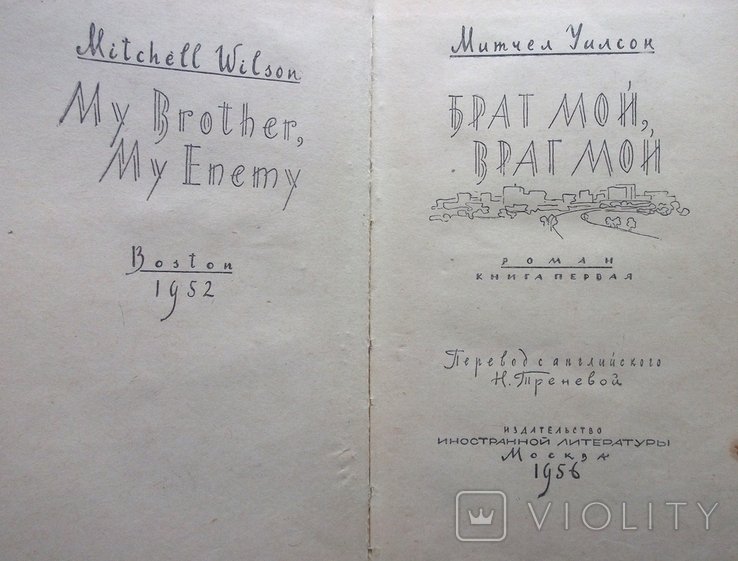 Mitchell Wilson
My Brother,
My Enemy
Boston
1952
Митчел Уилсон
БРАТ МОЙ,
ВРАГ МОЙ
РОМАН
КНИГА ПЕРВАЯ
Перевод с английского
Н. Треневой
ИЗДАТЕЛЬСТВО
ИНОСТРАННОЙ ЛИТЕРАТУРЫ
Москва
1956
VIOLITY